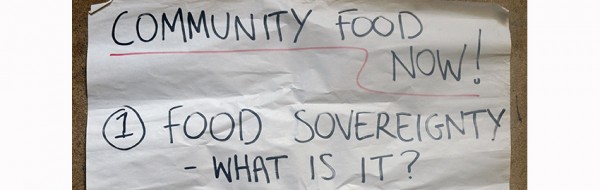 COMMUNITY FOOD
NOW!
① FOOD SOVEREIGNTY
- WHAT IS IT?